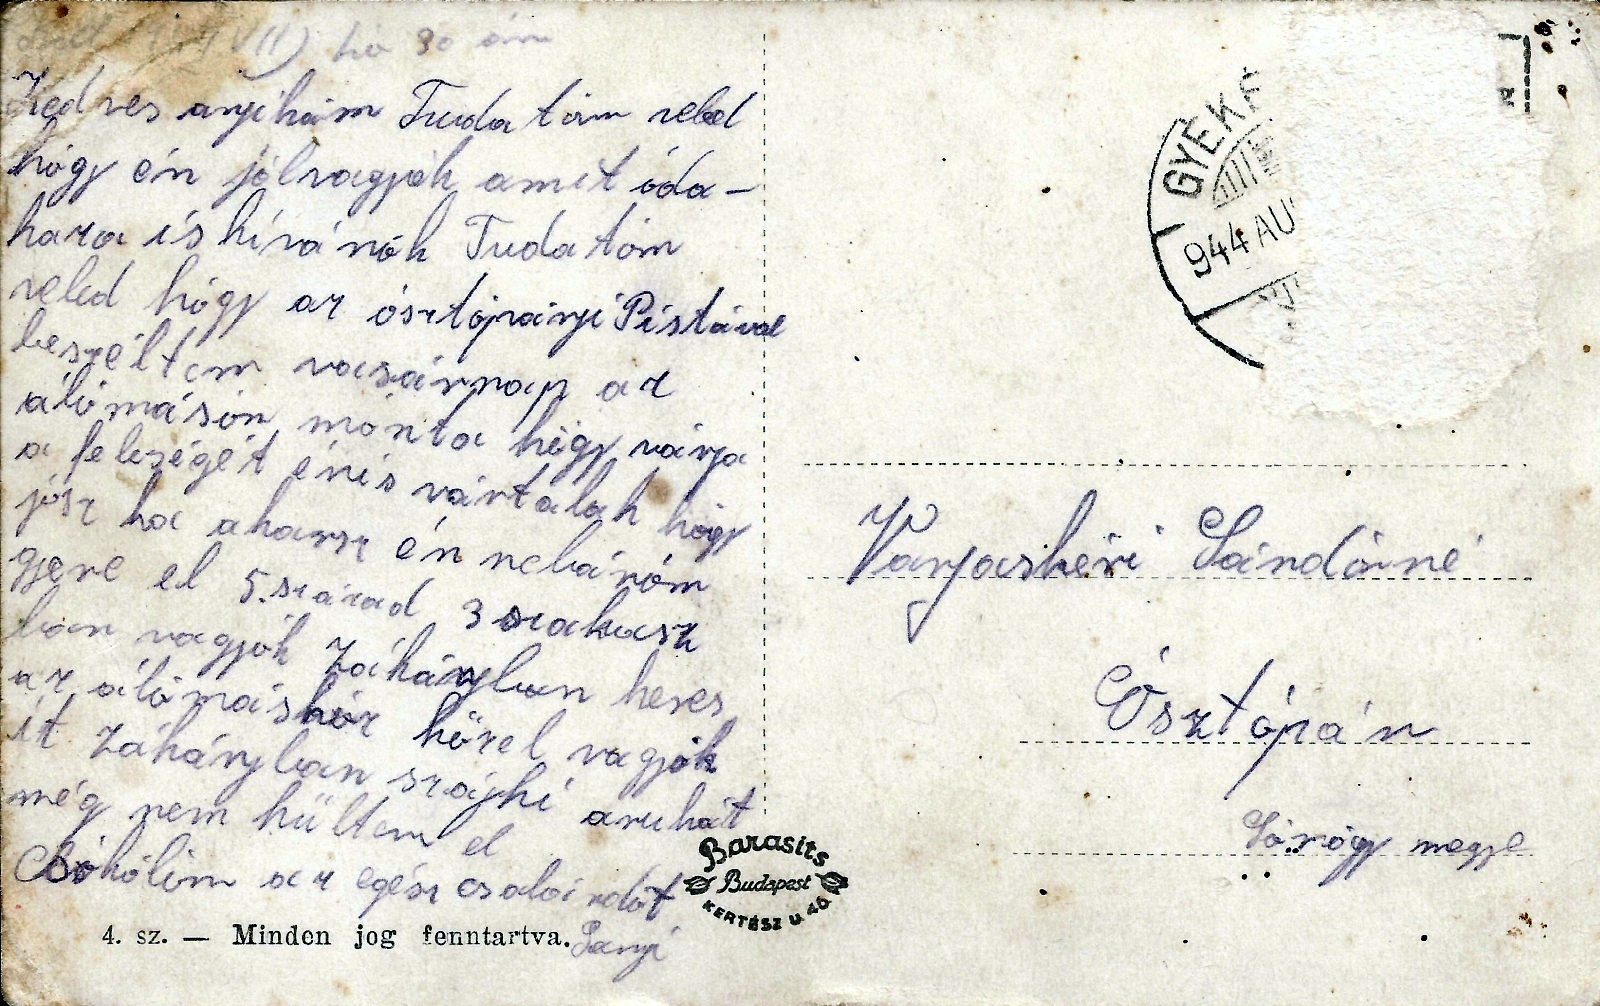 1944 VIII hó 30 án
Kedves anyikám Tudatóm veled
hógy én jólvagyók amit óda-
haza is kívánók Tudatóm
veled hógy az ósztópányi Pistával
beszéltem vasárnap az
álómásón mónta hógy várja
a feleségét énis vártalak hógy
jósz ha akarsz én nekáróm
gyere el 5. század 3 szakasz
ban vagyók Záhányban keres
az álómáshóz közel vagyók
it Záhányban szájhí aruhát
még nem kültem el
Csókólóm az egész csaladót
Sanyí
4. sz. — Minden jog fenntartva.
Barasits
Budapest
KERTÉSZ U. 40
GYÉKÉ
944 AU
Varjaskéri Sándórné
Ósztópán
Sómógy megye